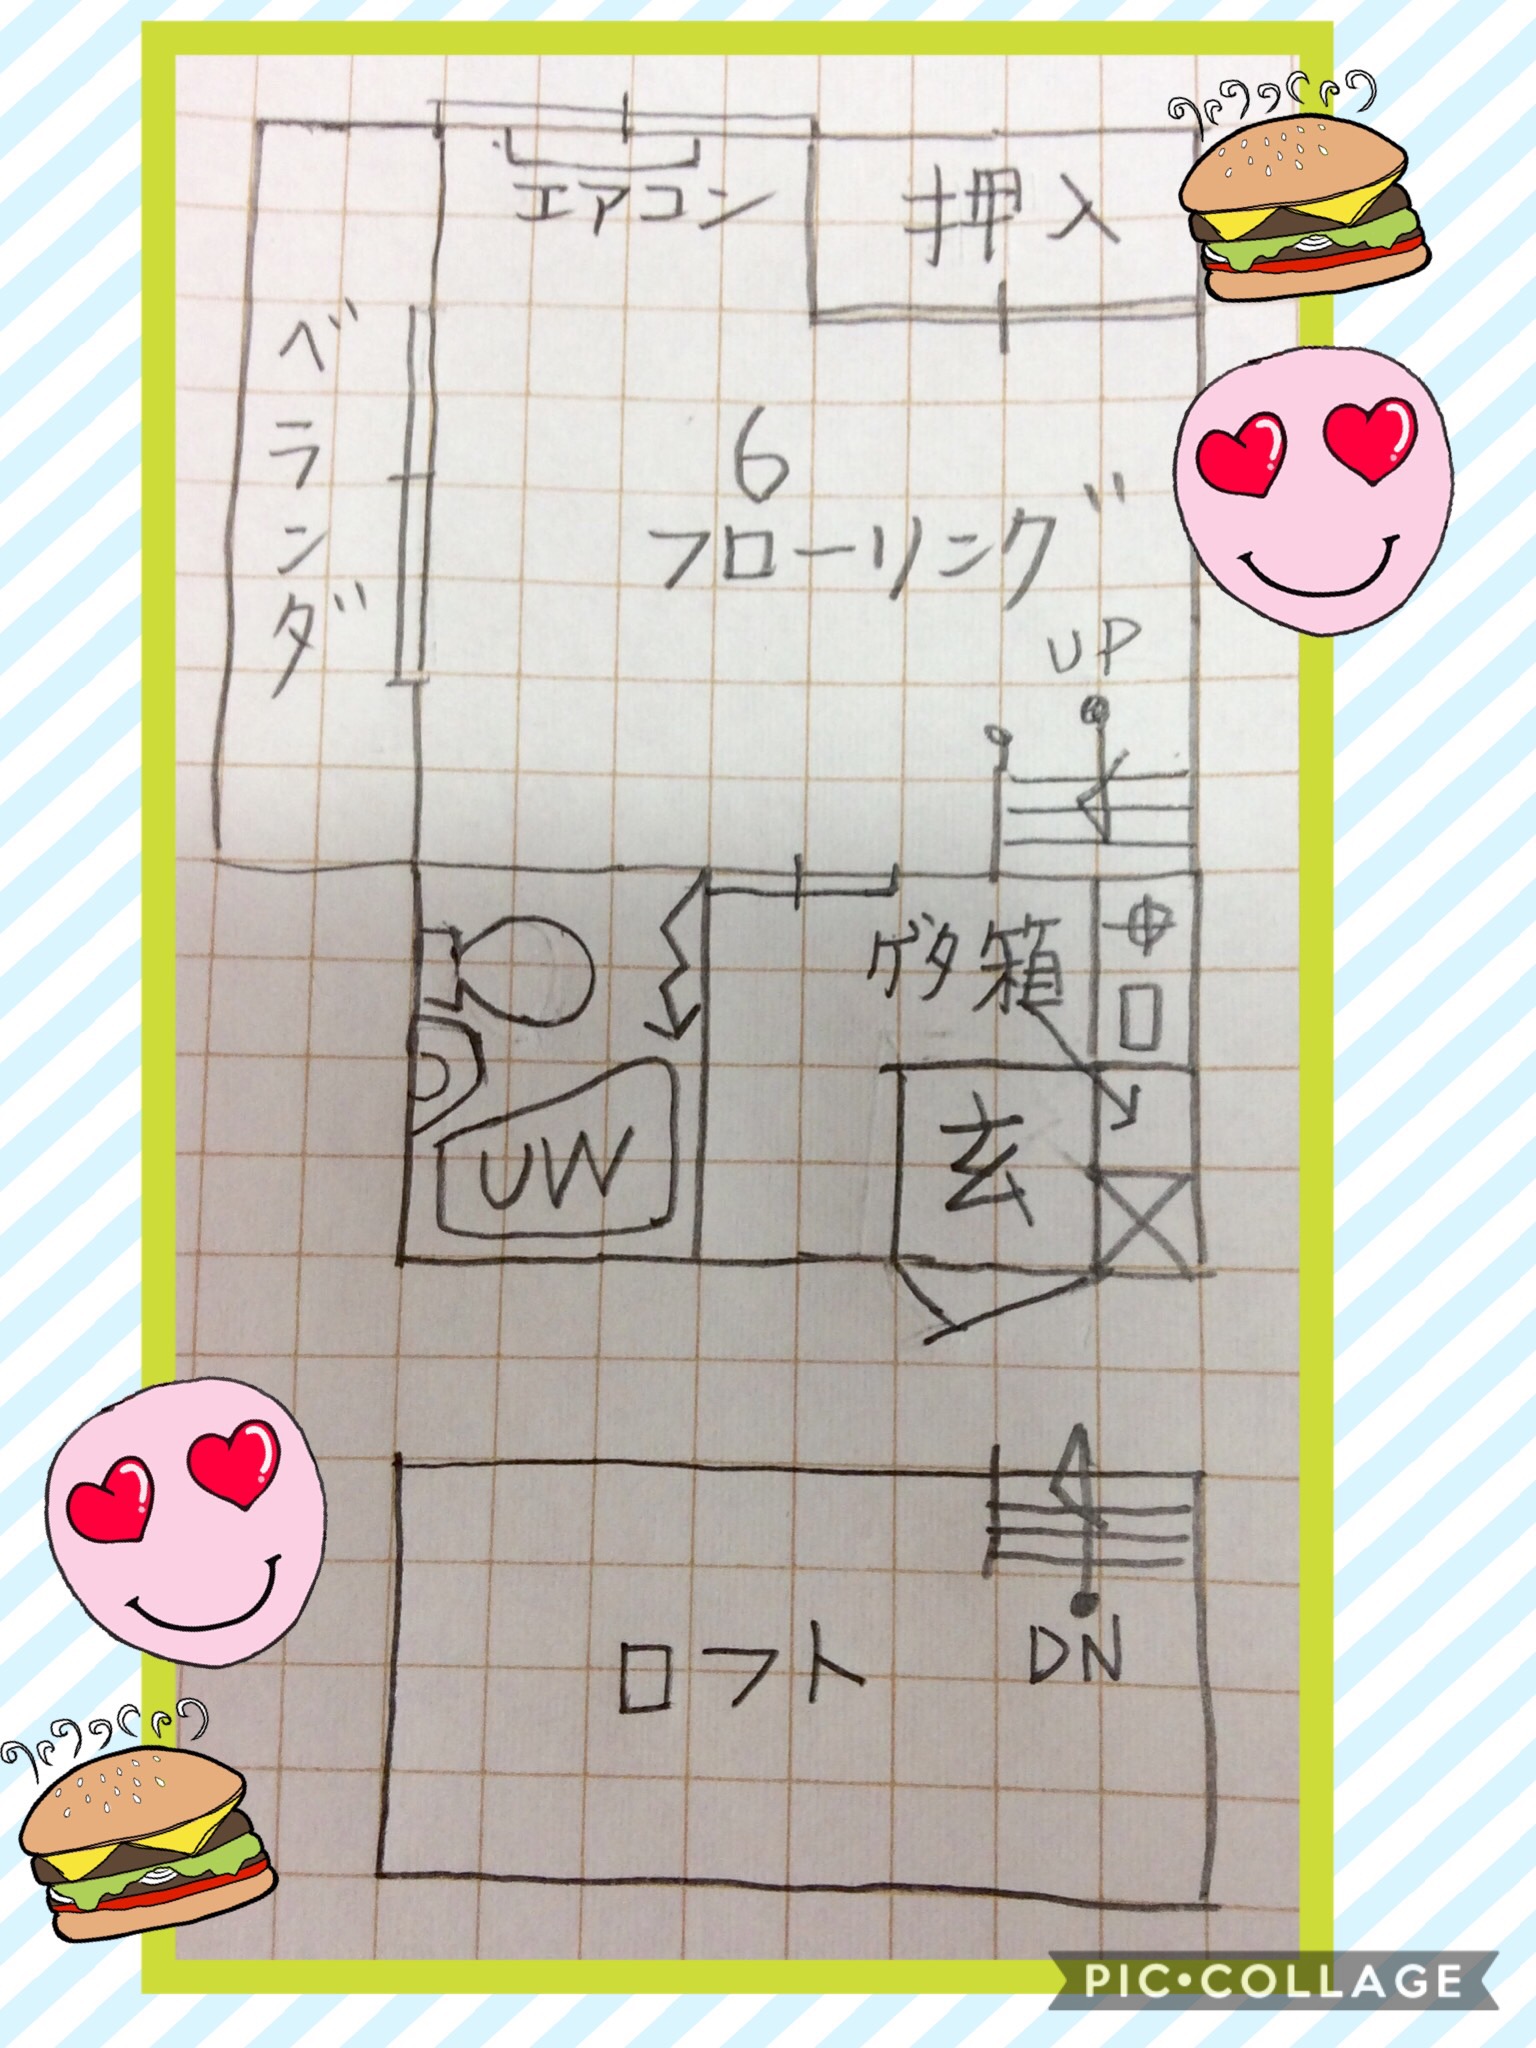 エアコン
押入
ベランダ
6
フローリング
UP
ゲタ箱
玄
UW
ロフト
DN
PIC•COLLAGE